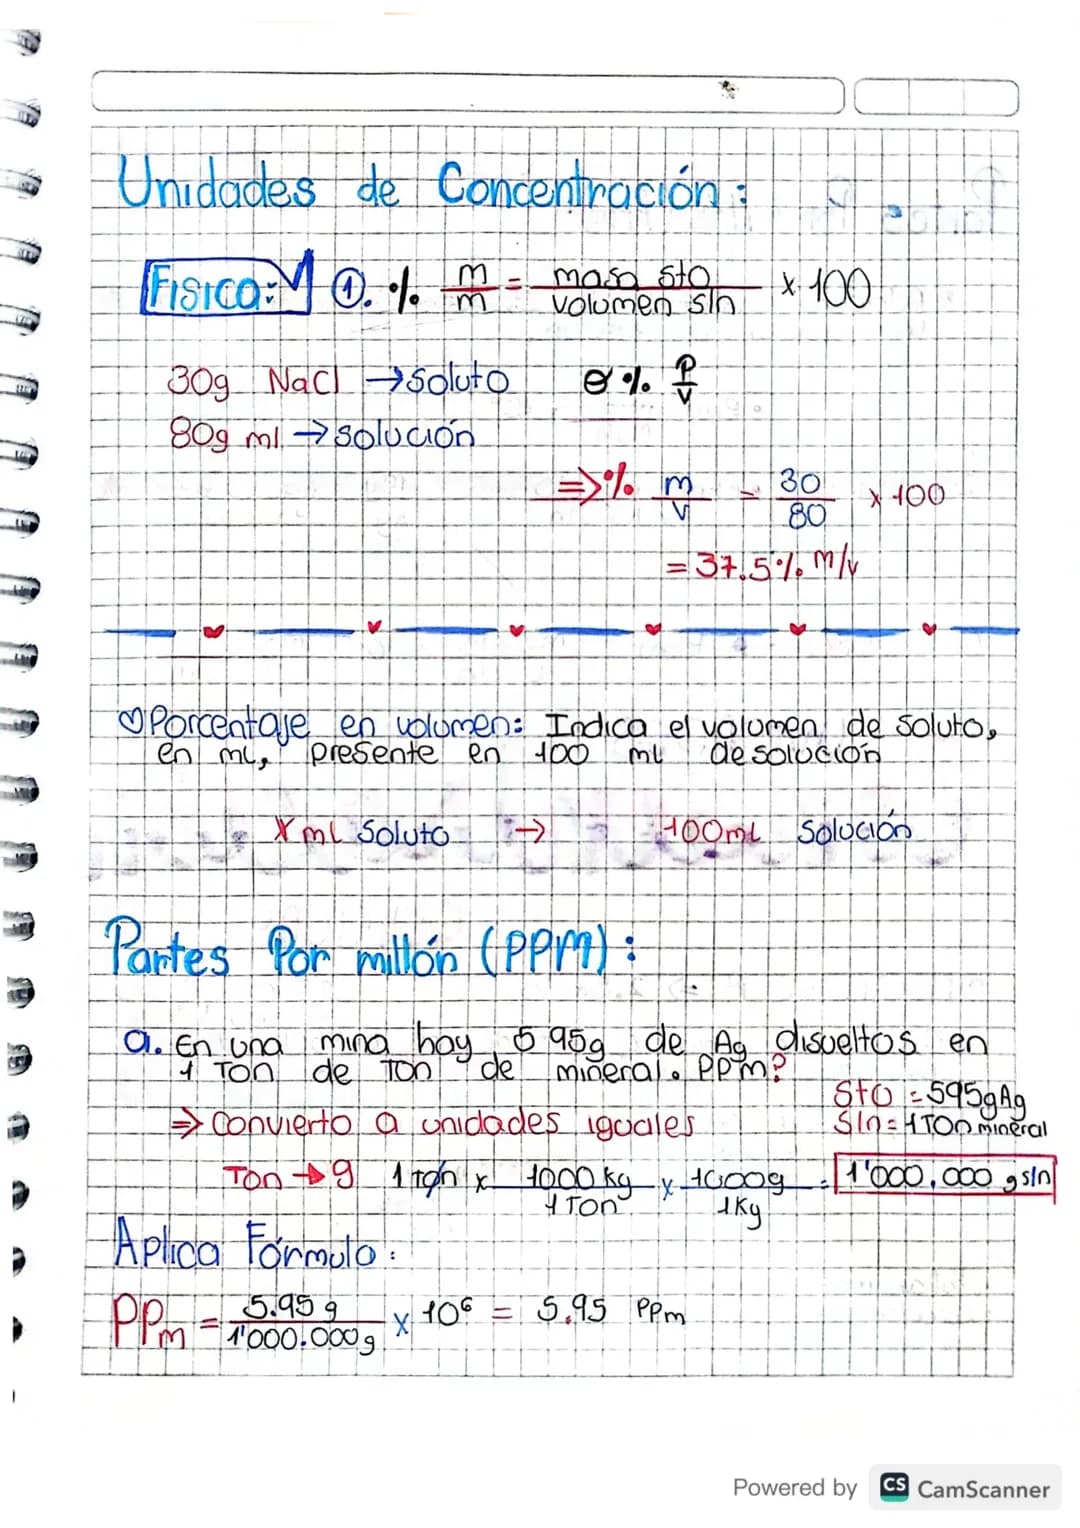 Unidades de Concentración:
Fisica: ①. % m/m = masa sto / volumen sln x 100
30g NaCl → soluto ó % P/V
80g ml → solución
⇒ % m/V = 30/80 x 100
= 37.5% m/v
♡ Porcentaje en volumen: Indica el volumen de soluto,
en mL, presente en 100 mL de solución
X mL Soluto → 100mL Solución
Partes Por millón (PPM):
a. En una mina hay 5 95g de Ag disueltos en
1 Ton de Ton de mineral. PPm?
Sto = 595g Ag
⇒ Convierto a unidades iguales
Sln = 1 Ton mineral
Ton → g 1 Ton x 1000 kg / 1 Ton x 1000g / 1Kg = 1'000.000 g sln
Aplica Fórmula:
PPm = 5.95 g / 1'000.000g x 10⁶ = 5.95 PPm
Powered by CS CamScanner